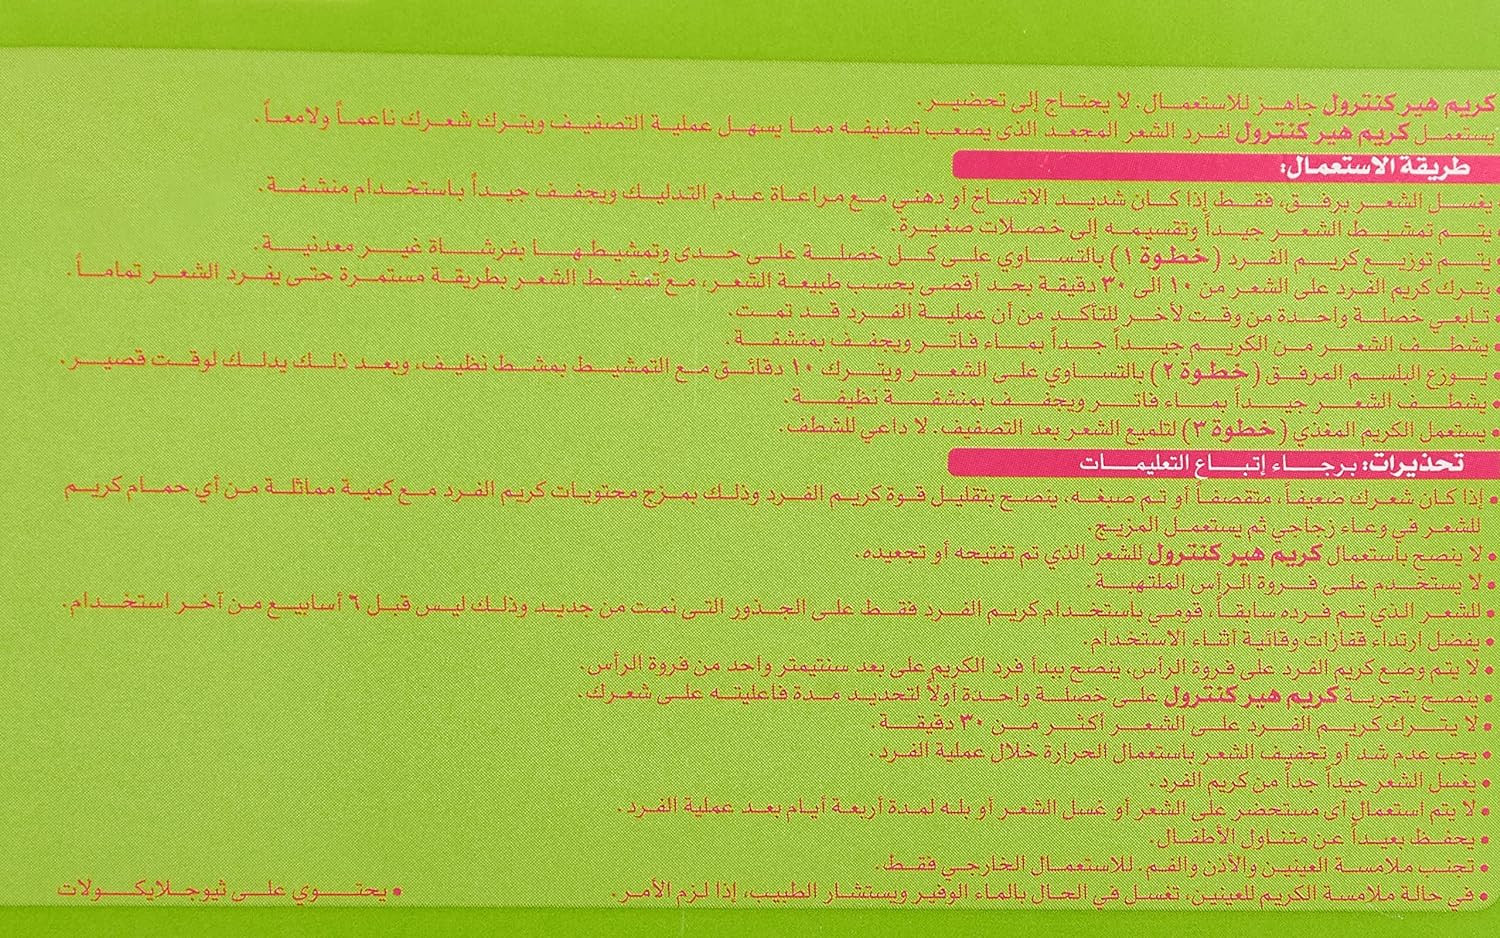 كريم هير كنترول جاهز للاستعمال. لا يحتاج إلى تحضير.
يستعمل كريم هير كنترول لفرد الشعر المجعد الذى يصعب تصفيفه مما يسهل عملية التصفيف ويترك شعرك ناعماً ولامعاً.
طريقة الاستعمال:
• يغسل الشعر برفق، فقط إذا كان شديد الاتساخ أو دهني مع مراعاة عدم التدليك ويجفف جيداً باستخدام منشفة.
• يتم تمشيط الشعر جيداً وتقسيمه إلى خصلات صغيرة.
• يتم توزيع كريم الفرد (خطوة ١) بالتساوي على كل خصلة على حدى وتمشيطها بفرشاة غير معدنية.
• يترك كريم الفرد على الشعر من ١٠ الى ٣٠ دقيقة بحد أقصى بحسب طبيعة الشعر، مع تمشيط الشعر بطريقة مستمرة حتى يفرد الشعر تماماً.
• تابعي خصلة واحدة من وقت لأخر للتأكد من أن عملية الفرد قد تمت.
• يشطف الشعر من الكريم جيداً جداً بماء فاتر ويجفف بمنشفة.
• يوزع البلسم المرفق (خطوة ٢) بالتساوي على الشعر ويترك ١٠ دقائق مع التمشيط بمشط نظيف، وبعد ذلك يدلك لوقت قصير.
• يشطف الشعر جيداً بماء فاتر ويجفف بمنشفة نظيفة.
• يستعمل الكريم المغذي (خطوة ٣) لتلميع الشعر بعد التصفيف. لا داعي للشطف.
تحذيرات: برجاء إتباع التعليمات
• إذا كان شعرك ضعيفاً، متقصفاً أو تم صبغه، ينصح بتقليل قوة كريم الفرد وذلك بمزج محتويات كريم الفرد مع كمية مماثلة من أي حمام كريم
للشعر في وعاء زجاجي ثم يستعمل المزيج.
• لا ينصح باستعمال كريم هير كنترول للشعر الذي تم تفتيحه أو تجعيده.
• لا يستخدم على فروة الرأس الملتهبة.
• للشعر الذي تم فرده سابقاً، قومى باستخدام كريم الفرد فقط على الجذور التى نمت من جديد وذلك ليس قبل ٦ أسابيع من آخر استخدام.
• يفضل ارتداء قفازات وقائية أثناء الاستخدام.
• لا يتم وضع كريم الفرد على فروة الرأس، ينصح ببدأ فرد الكريم على بعد سنتيمتر واحد من فروة الرأس.
• ينصح بتجربة كريم هير كنترول على خصلة واحدة أولاً لتحديد مدة فاعليته على شعرك.
• لا يترك كريم الفرد على الشعر أكثر من ٣٠ دقيقة.
• يجب عدم شد أو تجفيف الشعر باستعمال الحرارة خلال عملية الفرد.
• يغسل الشعر جيداً جداً من كريم الفرد.
• لا يتم استعمال أى مستحضر على الشعر أو غسل الشعر أو بله لمدة أربعة أيام بعد عملية الفرد.
• يحفظ بعيداً عن متناول الأطفال.
• تجنب ملامسة العينين والأذن والفم. للاستعمال الخارجي فقط.
• في حالة ملامسة الكريم للعينين، تغسل في الحال بالماء الوفير ويستشار الطبيب، إذا لزم الأمر.
• يحتوي على ثيوجلايكولات